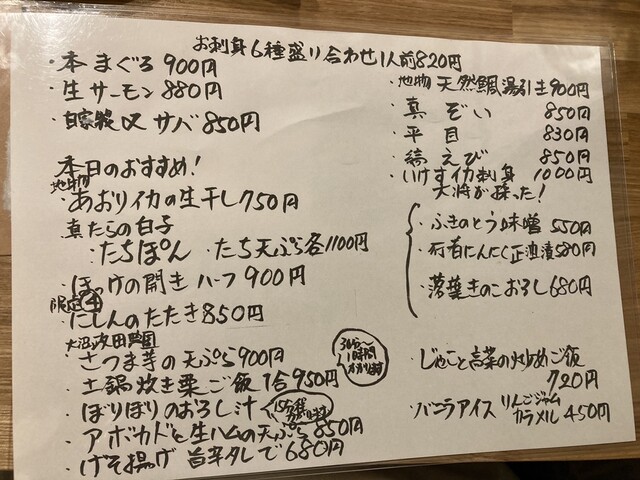 お刺身6種盛り合わせ1人前820円
・本まぐろ 900円
・生サーモン 880円
・自家製〆サバ 850円
・地物 天然鯛湯引き900円
・真ぞい 850円
・平目 830円
・縞えび 850円
・いけすイカ刺身 1000円
大将が採った!
・ふきのとう味噌 550円
・行者にんにく正油漬580円
・落葉きのこおろし680円
本日のおすすめ!
地物
・あおりイカの生干し750円
真たらの白子
・たちぽん ・たち天ぷら各1100円
・ほっけの開き ハーフ 900円
限定④
・にしんのたたき850円
大沼政田農園
・さつま芋の天ぷら900円
・土鍋炊き栗ご飯 1合950円
30分〜1時間かかります
・ぼりぼりのおろし汁
・アボカドと生ハムの天ぷら 850円
・げそ揚げ 旨辛タレで680円
・じゃこと高菜の炒めご飯
720円
・バニラアイス りんごジャム カラメル 450円